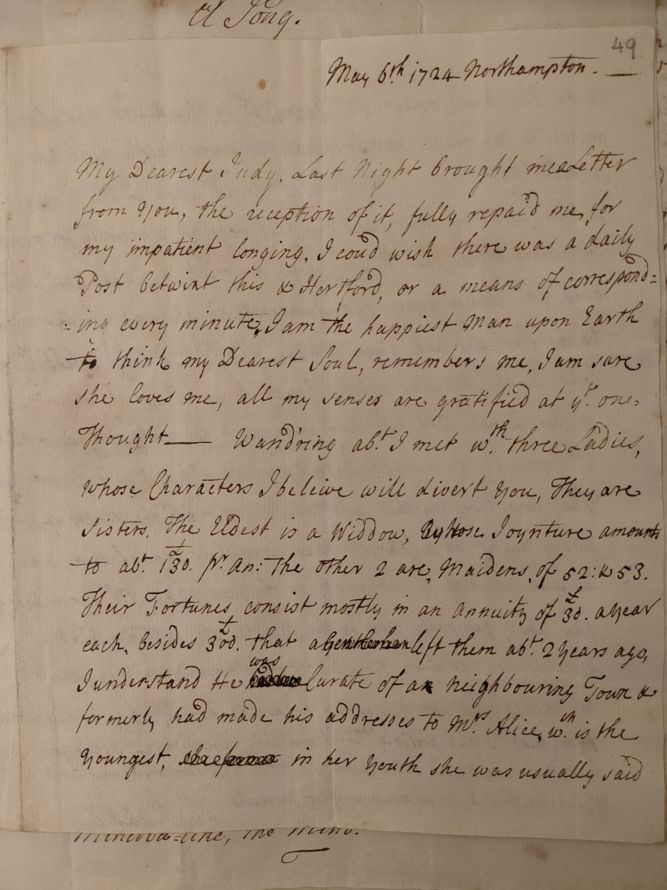 A Song.
49
May 6th 1724 Northampton.
My Dearest Judy. Last Night brought me a Letter
from You, the reception of it, fully repaid me, for
my impatient longing. I coud wish there was a daily
Post betwixt this & Hertford, or a means of correspond=
=ing every minute, I am the happiest Man upon Earth
to think my Dearest Soul, remembers me, I am sure
she loves me, all my senses are gratified at yt. one
Thought — Wand'ring abt. I met wth. three Ladies,
whose Characters I beleive will divert You, They are
Sisters. The Eldest is a Widdow, whose Joynture amounts
to abt. 130. pr. An: the other 2 are, Maidens, of 52: & 53.
Their Fortunes, consist mostly in an Annuity of 30. a year
each, besides 300. that a Gentleman left them abt. 2 years ago,
I understand He was Curate of a neighbouring Town &
formerly had made his addresses to Mrs. Alice, wch. is the
Youngest, in her Youth she was usually said
the Mind.